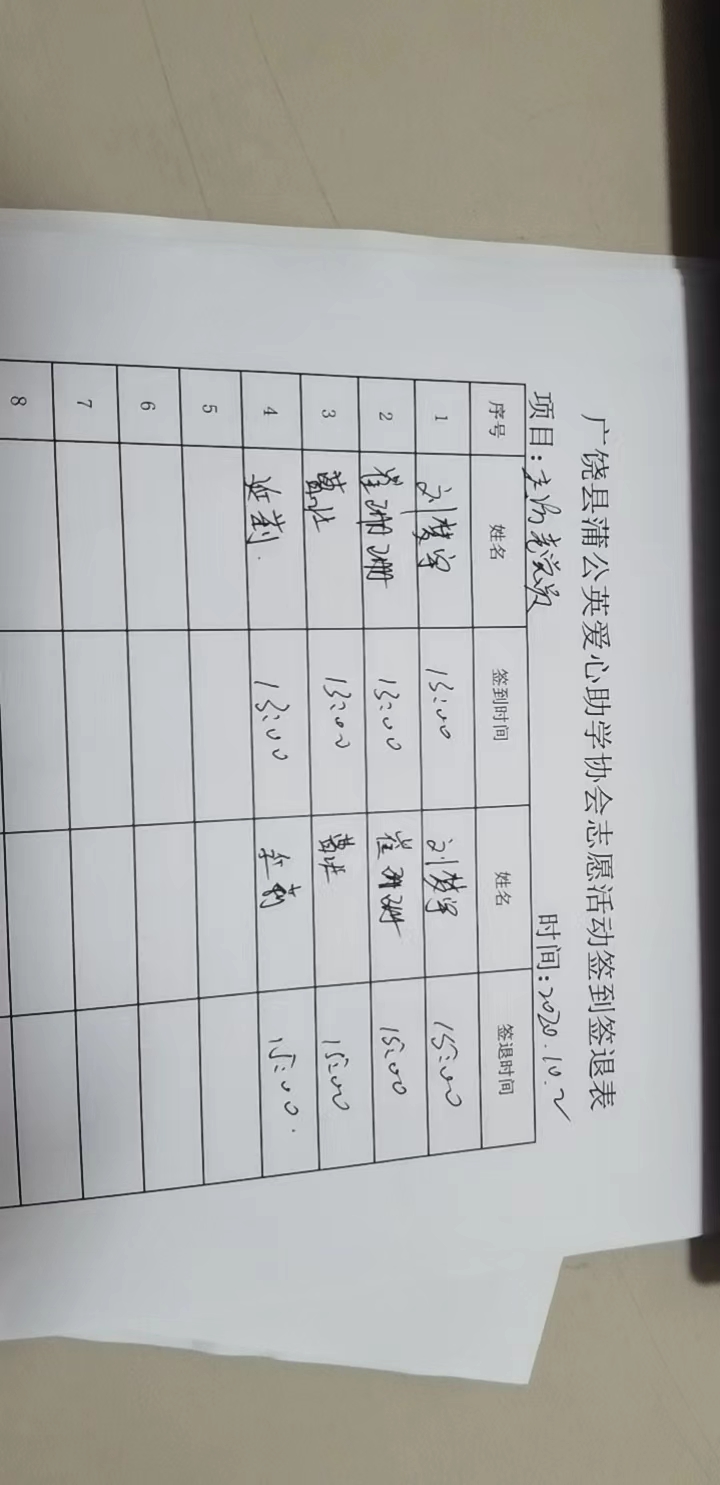 广饶县蒲公英爱心助学协会志愿活动签到签退表
项目:走访老党员 时间:2020.10.2
序号 姓名 签到时间 姓名 签退时间
1 刘梦宇 13:00 刘梦宇 15:00
2 崔珊珊 13:00 崔珊珊 15:00
3 13:00 15:00
4 13:00 15:00.
5
6
7
8